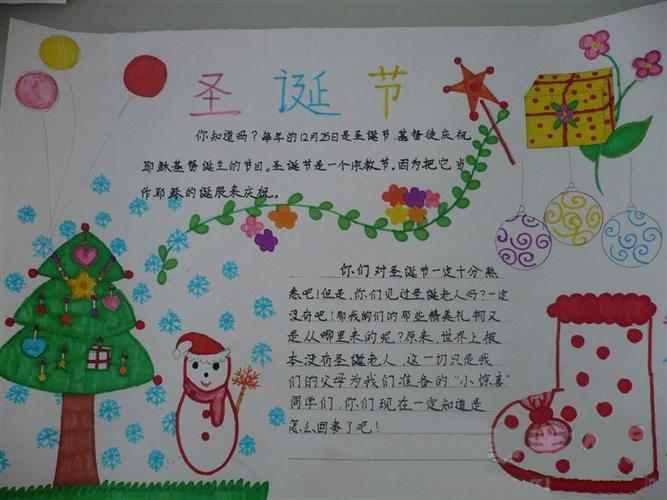 圣诞节
你知道吗?每年的12月25日是圣诞节,基督徒庆祝
耶稣基督诞生的节日。圣诞节是一个宗教节。因为把它当
作耶稣的诞辰来庆祝。
你们对圣诞节一定十分熟
悉吧!但是,你们见过圣诞老人吗?一定
没有吧!那我的们的那些精美礼物又
是从哪里来的呢?原来,世界上根
本没有圣诞老人,这一切只是我
们的父母为我们准备的“小惊喜”
同学们,你们现在一定知道是
怎么回事了吧!